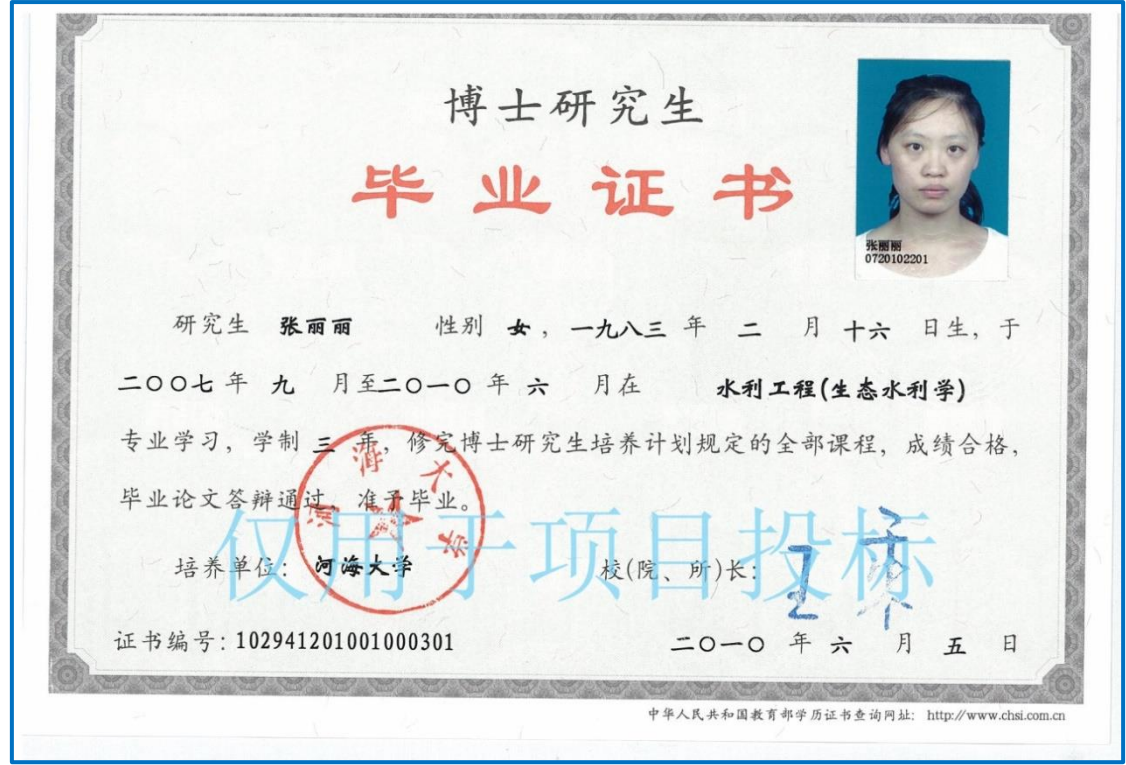 博士研究生
毕业证书
张丽丽
0720102201
研究生 张丽丽 性别 女，一九八三 年 二 月 十六 日生，于
二〇〇七 年 九 月至二〇一〇 年 六 月在 水利工程(生态水利学)
专业学习，学制 三 年，修完博士研究生培养计划规定的全部课程，成绩合格，
毕业论文答辩通过，准予毕业。
河海大学
仅用于项目投标
培养单位：河海大学 校(院、所)长：
证书编号：102941201001000301 二〇一〇 年 六 月 五 日
中华人民共和国教育部学历证书查询网址： http://www.chsi.com.cn